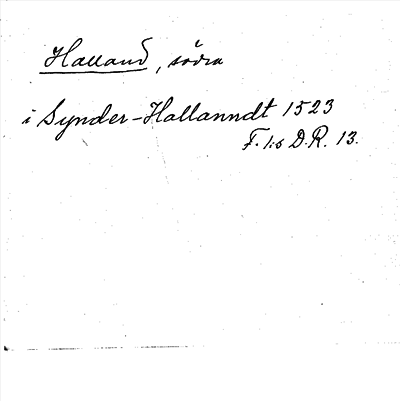 Halland, södra
i Synder-Hallanndt 1523
F. I:s D.R. 13.